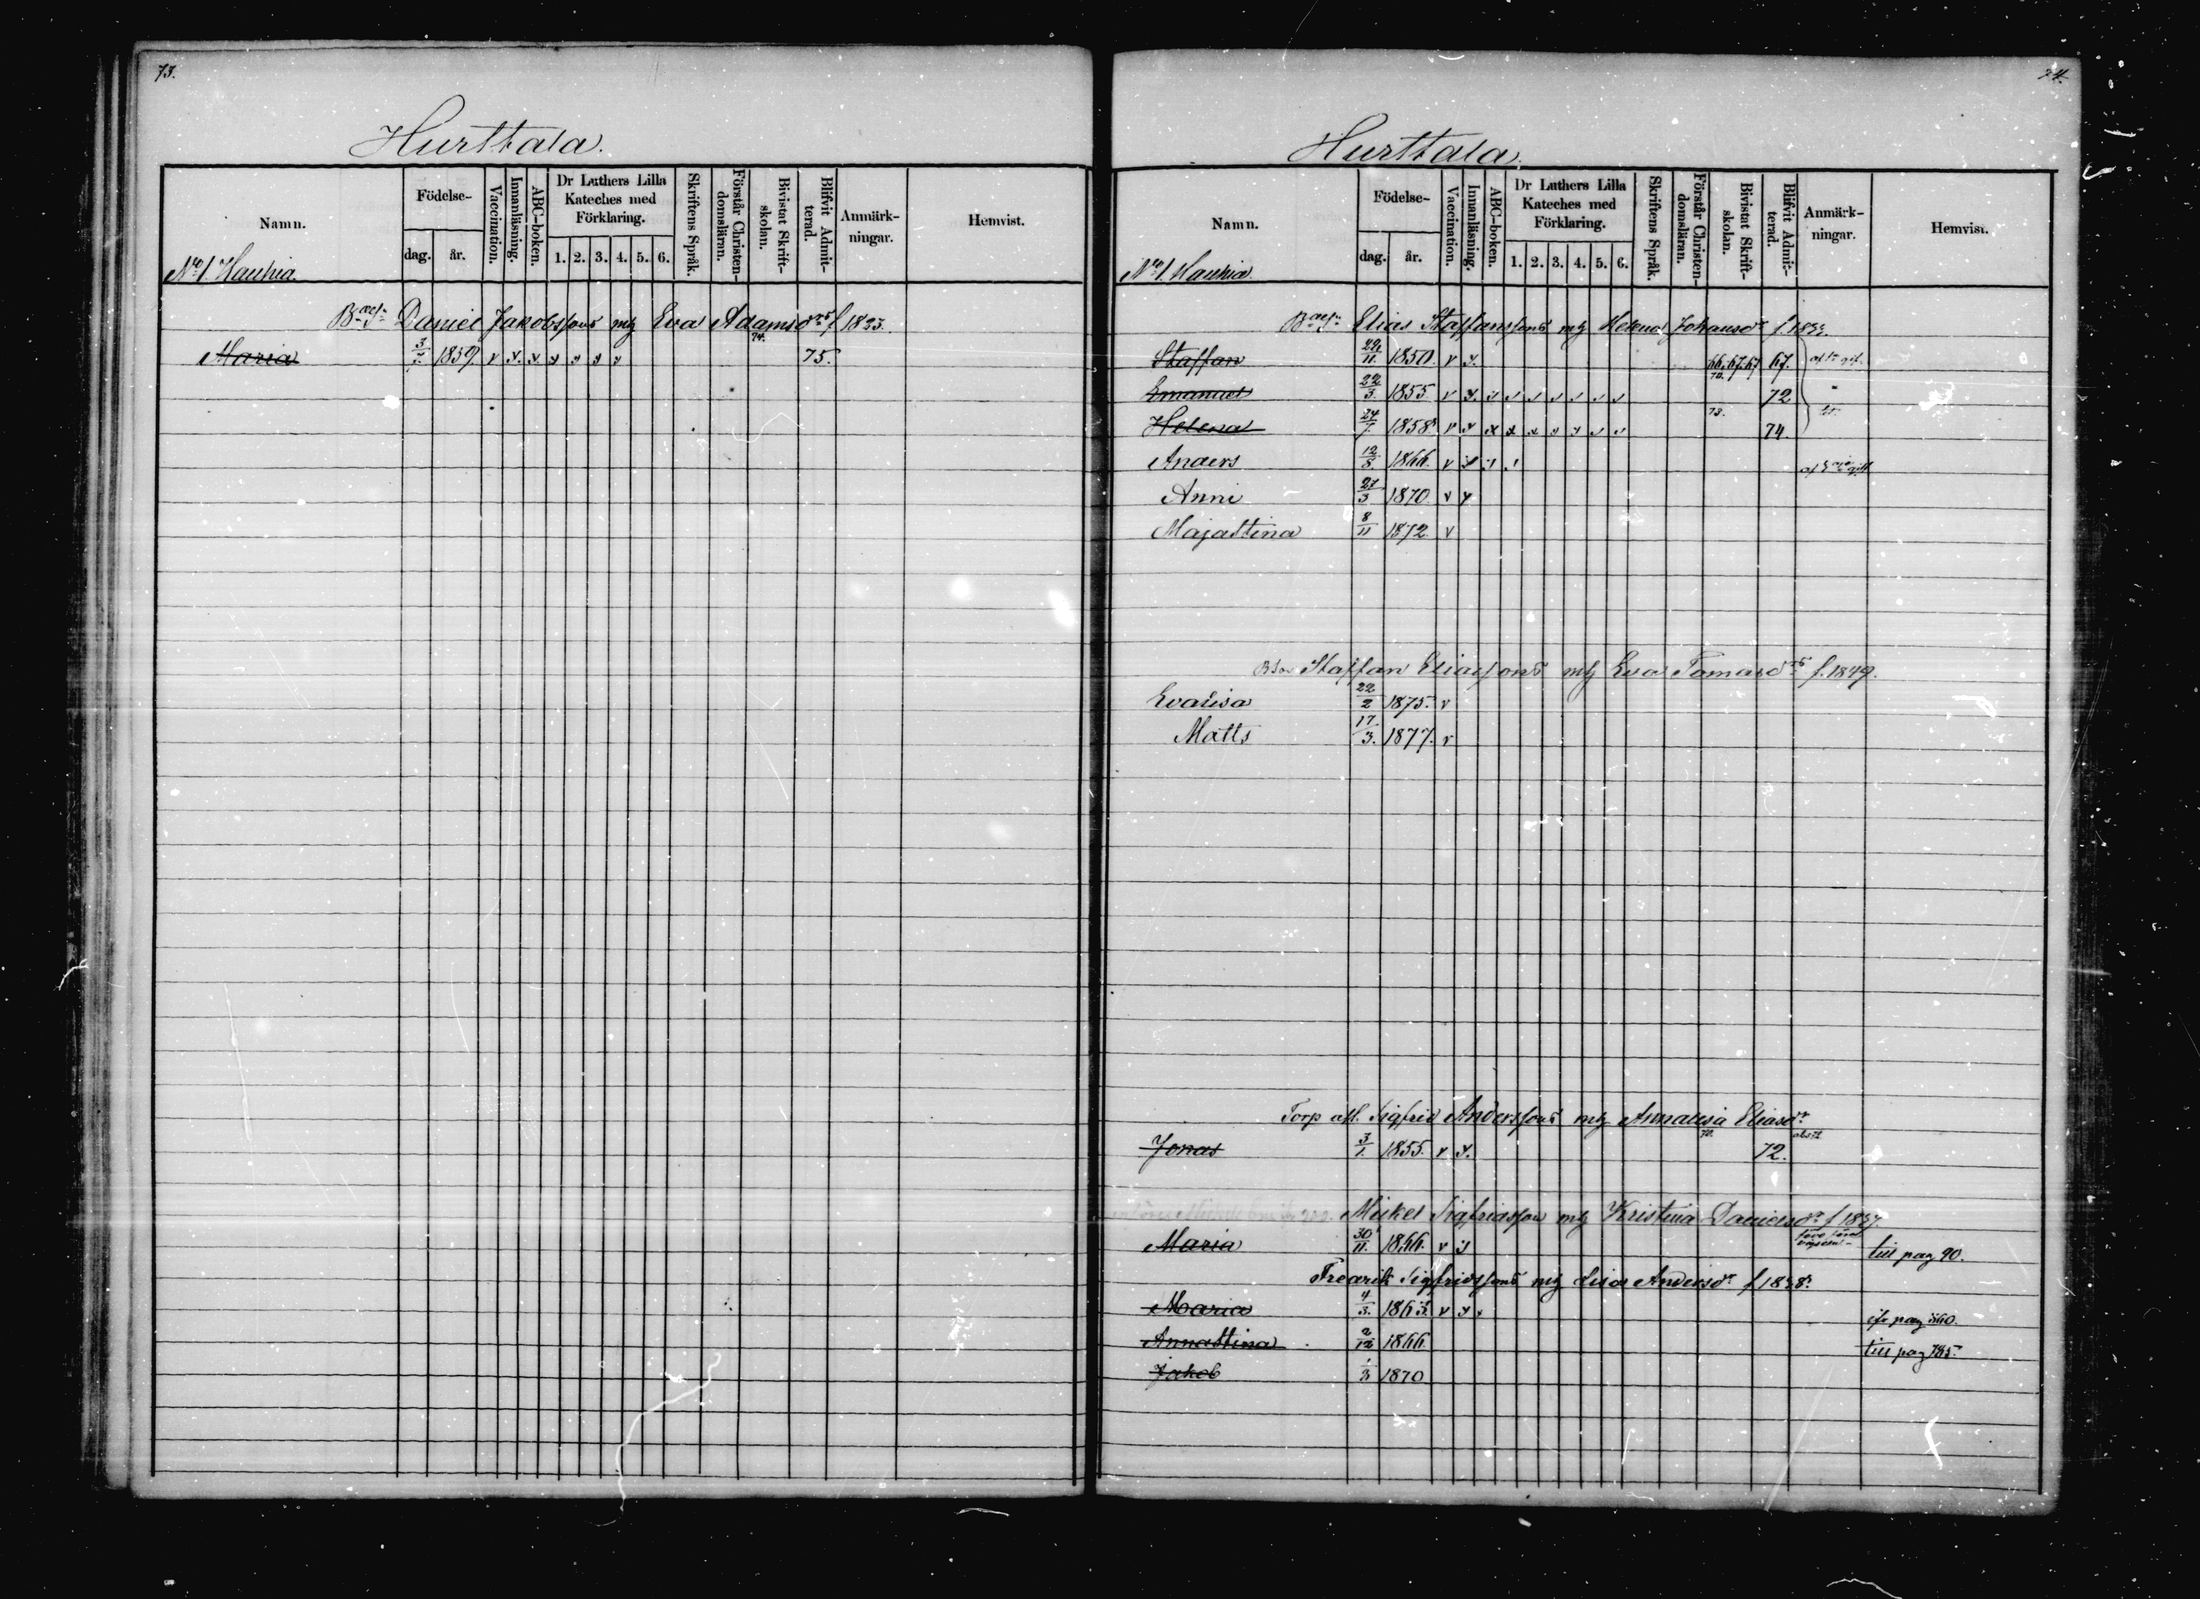 73.
Hurttala.
Namn.
Födelse-
dag. år.
Vaccination.
Innanläsning.
ABC-boken.
Dr Luthers Lilla Kateches med Förklaring.
1. 2. 3. 4. 5. 6.
Skriftens Språk.
Förstår Christendomsläran.
Bivistat Skriftskolan.
Blifvit Admitterad.
Anmärkningar.
Hemvist.
No 1. Hauhia.
Daniel Jakobssons mh Eva Adamsdr f 1823.
Maria 3/7. 1859. v x. x x x x x 74. 75.
74.
Hurttala.
Namn.
Födelse-
dag. år.
Vaccination.
Innanläsning.
ABC-boken.
Dr Luthers Lilla Kateches med Förklaring.
1. 2. 3. 4. 5. 6.
Skriftens Språk.
Förstår Christendomsläran.
Bivistat Skriftskolan.
Blifvit Admitterad.
Anmärkningar.
Hemvist.
No 1. Hauhia
Elias Staffanssons mh Helena Johansdr
Staffan 1850. v x. 66. 67. 67 67.
Emanuel 22/3. 1855. v x. 70. 72
Helena 24/7. 1858. v x 73. 74.
Anders 12/8. 1866. v
Anni 27/3 1870. v x
Majastina 8/11 1872. v
Staffan Eliassons mh Eva Tomasdr f. 1849.
Evalisa 22/2 1875. v
Matts 17/3. 1877. v
Torp afl. Sigfrid Anderssons mh Annalisa Eliasdr
Jonas 3/1. 1855. v x. 72.
Mickel Sigfridsson mh Kristina Danielsdr
Maria 30/11. 1866. v x till pag 90.
Fredrik Sigfridssons mh Lisa Andersdr f 1838.
Maria 4/3. 1863. v x
Annastina 2/12 1866. till pag 185.
Jakob 1/3 1870